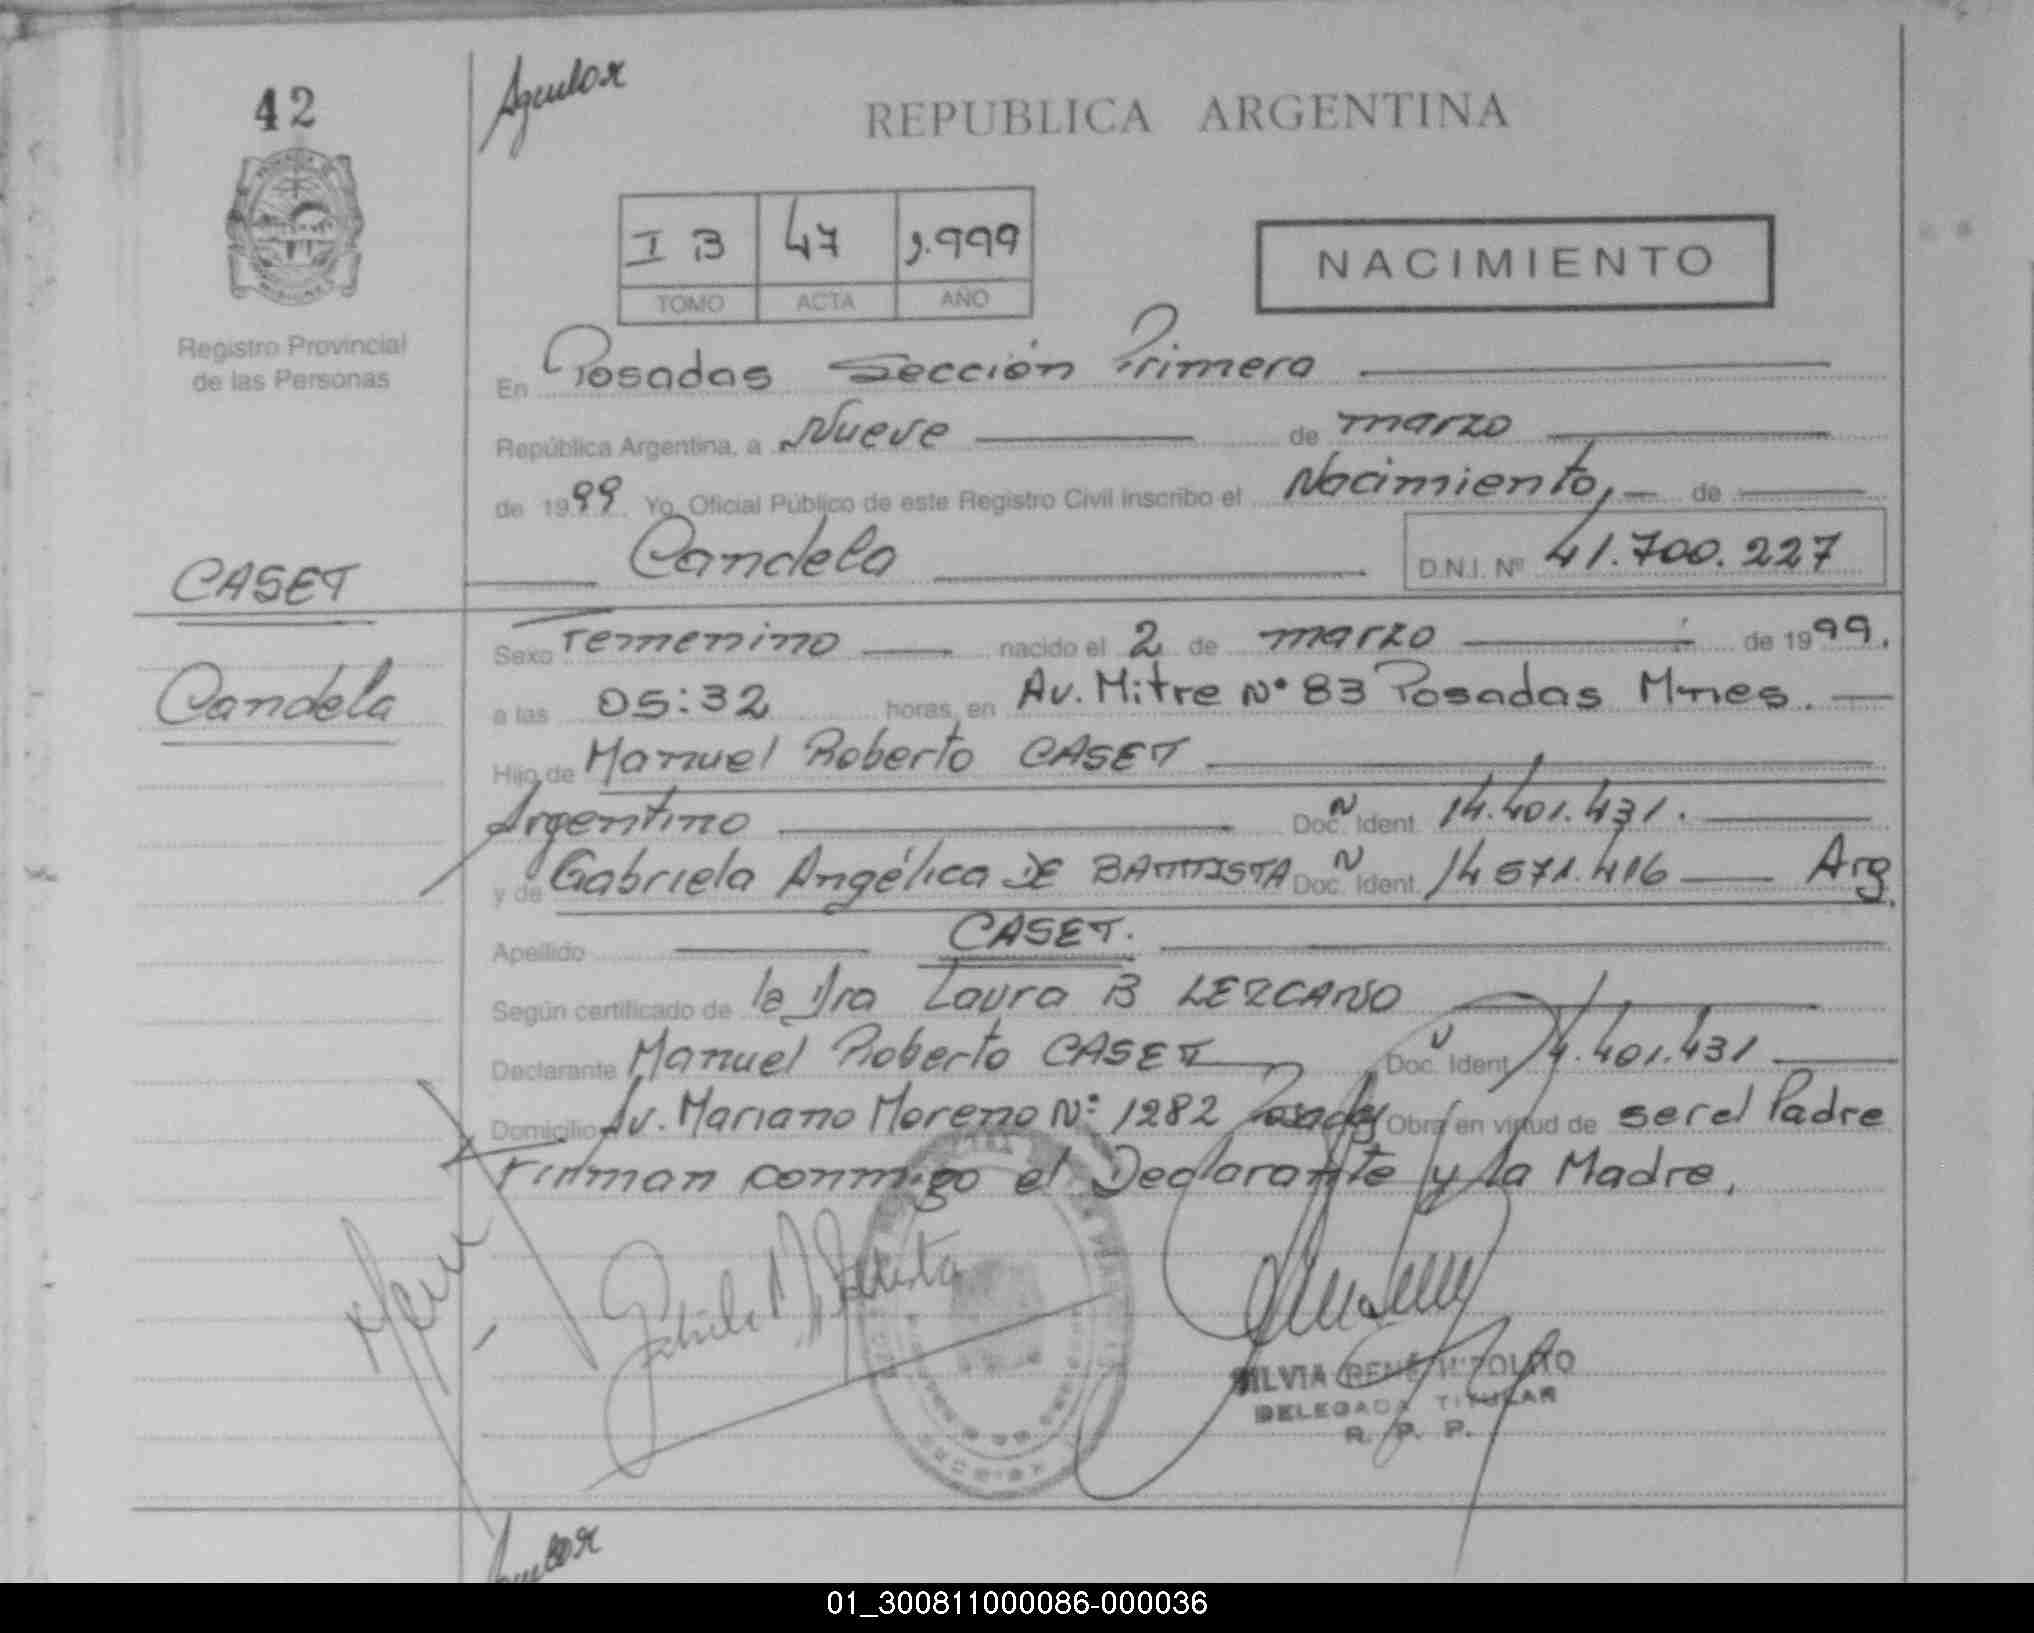 42
Aguilar
REPUBLICA ARGENTINA
I B 47 1.999
TOMO ACTA AÑO
NACIMIENTO
Registro Provincial
de las Personas
En Posadas Sección Primera
República Argentina, a Nueve de marzo
de 1999 Yo, Oficial Público de este Registro Civil inscribo el Nacimiento, de
Candela D.N.I. Nº 41.700.227
CASET
Candela
Sexo Femenino nacido el 2 de marzo de 1999.
a las 05:32 horas, en Av. Mitre Nº 83 Posadas Mnes.
Hijo de Manuel Roberto CASET
Argentino Doc. N Ident. 14.401.431.
y de Gabriela Angélica DE BATTISTA Doc. N Ident. 14.571.416 Arg.
Apellido CASET.
Según certificado de la Dra Laura B LEZCANO
Declarante Manuel Roberto CASET Doc. N Ident. 14.401.431
Domicilio Av. Mariano Moreno Nº 1282 Posadas Obra en virtud de ser el Padre
Firman conmigo el Declarante y la Madre.
SILVIA RENÉ
DELEGADA TITULAR
R. P. P.
01_300811000086-000036